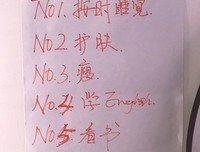 No1.按时睡觉.
No2.护肤.
No.3.瘦.
No.4.学English.
No5.看书